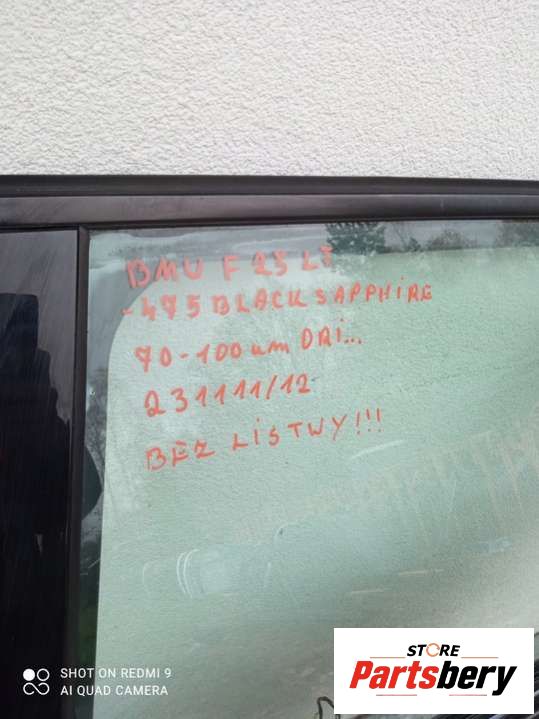 BMW F 25 LT
-475 BLACK SAPPHIRE
70-100 um ORI...
231111/12
BEZ LISTWY!!!
SHOT ON REDMI 9
AI QUAD CAMERA
STORE
Partsbery